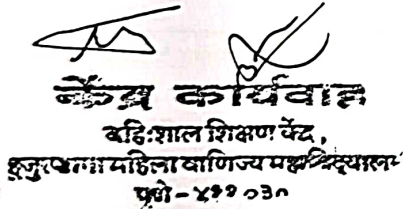 केंद्र कार्यवाह
बहि:शाल शिक्षण केंद्र,
हुजुरपागा महिला वाणिज्य महाविद्यालय
पुणे - ४११ ०३०